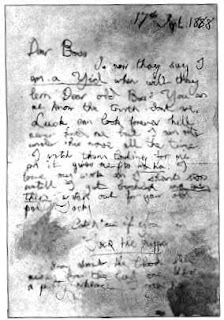 17th Sept. 1888
Dear Boss
So now they say I
am a Yid when will they
lern Dear old Boss? You an
me know the truth dont we.
Lusk can look forever hell
never find me but I am rite
under his nose all the time
I watch them looking for me
an it gives me fits ha ha I
love my work an I shant stop
until I get buckled and
then watch out for your old
pal Jacky
Catch me if you
Jack the Ripper
Sorry about the blood